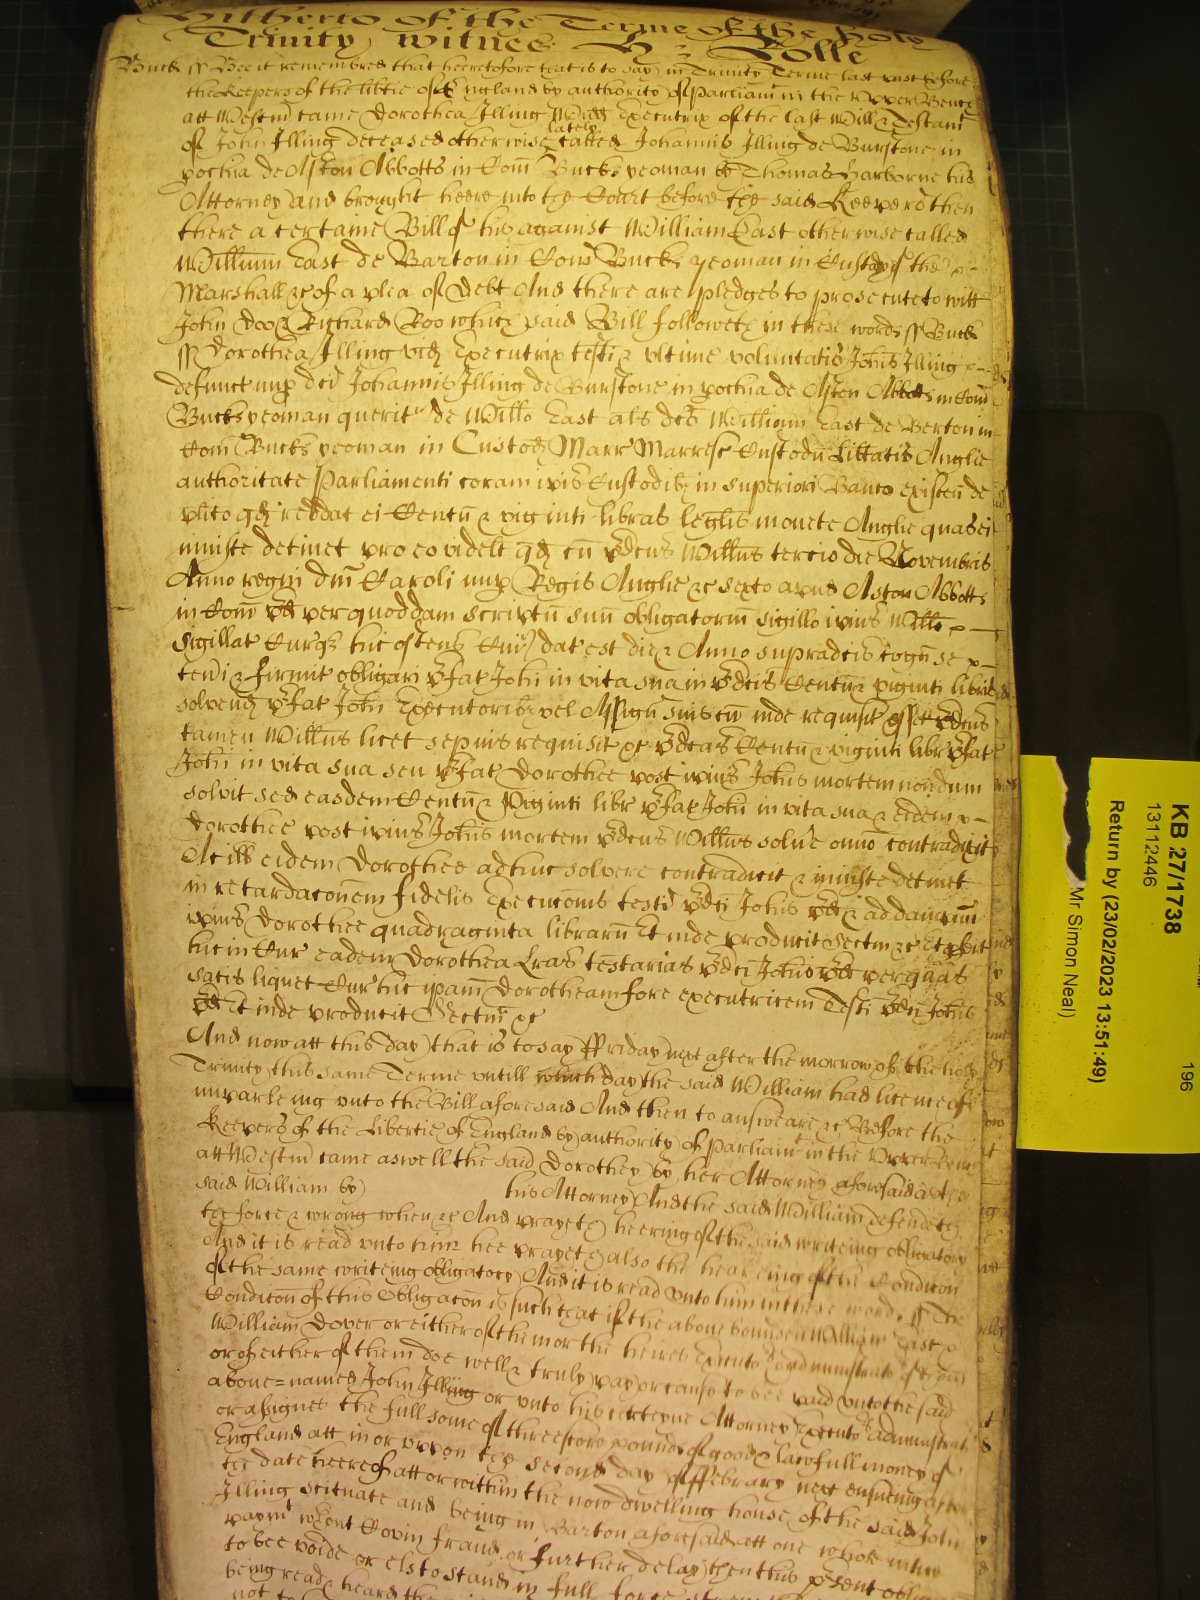 Hitherto of the Terme of the Holy
Trinity witnes H: Rolle
Buck ss Bee it remembred that heeretofore that is to say in Trinity Terme last past before
the Keepers of the libtie of England by authority of Parliamt in the Upper Bench
att Westm came Dorothea Illing Widd Executrix of the last Will & Testamt
of John Illing deceased otherwise lately called Johannis Illing de Burstone in
pochia de Aston Abbotts in Com Bucks yeoman by Thomas Harborne his
Attorney and brought heere into the Court before the said Keepers then
there a certaine Bill of his against William East otherwise called
William East de Barton in Com Buck yeoman in Custody of the
Marshall &c of a plea of Debt And there are pledges to prosecute to witt
John Doo & Richard Roo which said Bill followeth in these words ss Buck
ss Dorothea Illing vid Executrix testi & ultime voluntatis Johis Illing
defunct nup dci Johannis Illing de Burstone in pochia de Aston Abbotts in Com
Bucks yeoman querit de Willo East als dcs William East de Berton in
Com Bucks yeoman in Custod Marr Marresc Custodu Libtatis Anglie
authoritate Parliamenti coram ipis Custodibz in superiori Banco existen de
plito qd reddat ei Centu & viginti libras leglis monete Anglie quas ei
iniuste detinet pro eo videlt qd cu pdcus Willus tercio die Novembris
Anno regni dni Caroli nup Regis Anglie &c sexto apud Aston Abbotts
in Com pd per quoddam scriptu suu obligatorm sigillo ipius Willi
sigillat Curqz hic ostens cuius dat est die & Anno supradcis cogn se
teneri & firmit obligari pfat Johi in vita sua in pdcis Centu & viginti libris
solvend pfat Johi Executoribz vel Assign suis cu inde requisit esset pdcus
tamen Willus licet sepius requisit &c pdcas Centu & viginti libr pfat
Johi in vita sua seu pfat Dorothee post ipius Johis mortem nondum
solvit sed easdem Centu & Viginti libr pfat Johi in vita sua & eidem
Dorothee post ipius Johis mortem pdcus Willus solve omio contradixit
Ac ill eidem Dorothee adhuc solvere contradicit & iniuste detinet
in retardaconem fidelis Execuconis testi pdci Johis pd & ad dampnu
ipius Dorothee quadraginta libraru Et inde producit sectm &c Et pfert
hic in Cur eadem Dorothea Lras testarias pdci Johis pd per quas
satis liquet Cur hic ipam Dorotheam fore executricem Testi pdci Johis
pd Et inde producit Sectm &c
And now att this day that is to say Friday next after the morrow of the holy
Trinity this same Terme untill which day the said William had licence of
imparleing unto the Bill aforesaid And then to answeare &c Before the
Keepers of the Libertie of England by authority of Parliamt in the Upper Bench
att Westm came aswell the said Dorothey by her Attorney aforesaid as the
said William by his Attorney And the said William defendeth
the force & wrong when &c And prayeth heering of the said writeing obligatory
And it is read unto him hee prayeth also the heareing of the Condicon
of the same writeing obligatory And it is read unto him in these words ss The
Condicon of this Obligacon is such that if the above bounden William East
William Dover or either of them or the heires Executors administrators of them
or of either of them doe well & truly pay or cause to bee paid unto the said
above-named John Illing or unto his certeyne Attorney Executs administrat
or assignes the full some of threescore pounds of good & lawfull money of
England att in or upon the second day of February next ensueing after
the date heereof att or within the now dwelling house of the said John
Illing scituate and being in Barton aforesaid att one whole intire
paymt wthout Covin fraud or further delay then this psent obligacon
to bee voide or els to stand in full force
being read & heard the
not to
KB 27/1738
13112446
196
Return by (23/02/2023 13:51:49)
Mr Simon Neal)